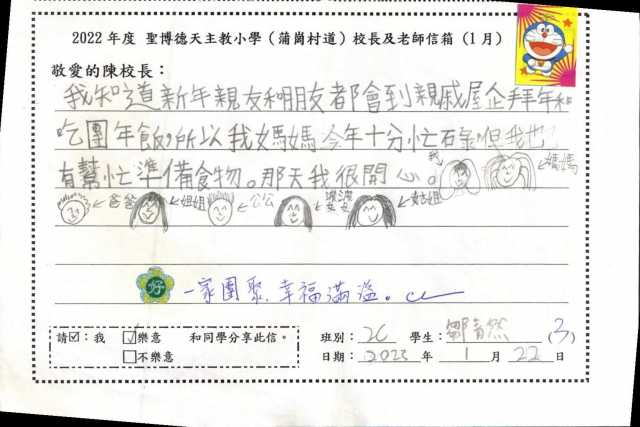 2022 年度 聖博德天主教小學（蒲崗村道）校長及老師信箱（1月）
敬愛的陳校長：
我知道新年親友和朋友都會到親戚屋企拜年和
吃團年飯,所以我媽媽今年十分忙碌,但我也
有幫忙準備食物。那天我很開心。 我 媽媽
爸爸 姐姐 公公 婆婆 姑姐
好 一家團聚,幸福滿溢。
請☑：我 ☑樂意 和同學分享此信。
☐不樂意
班別： 2C 學生： 鄒 然 (3)
日期： 2022 年 1 月 22 日